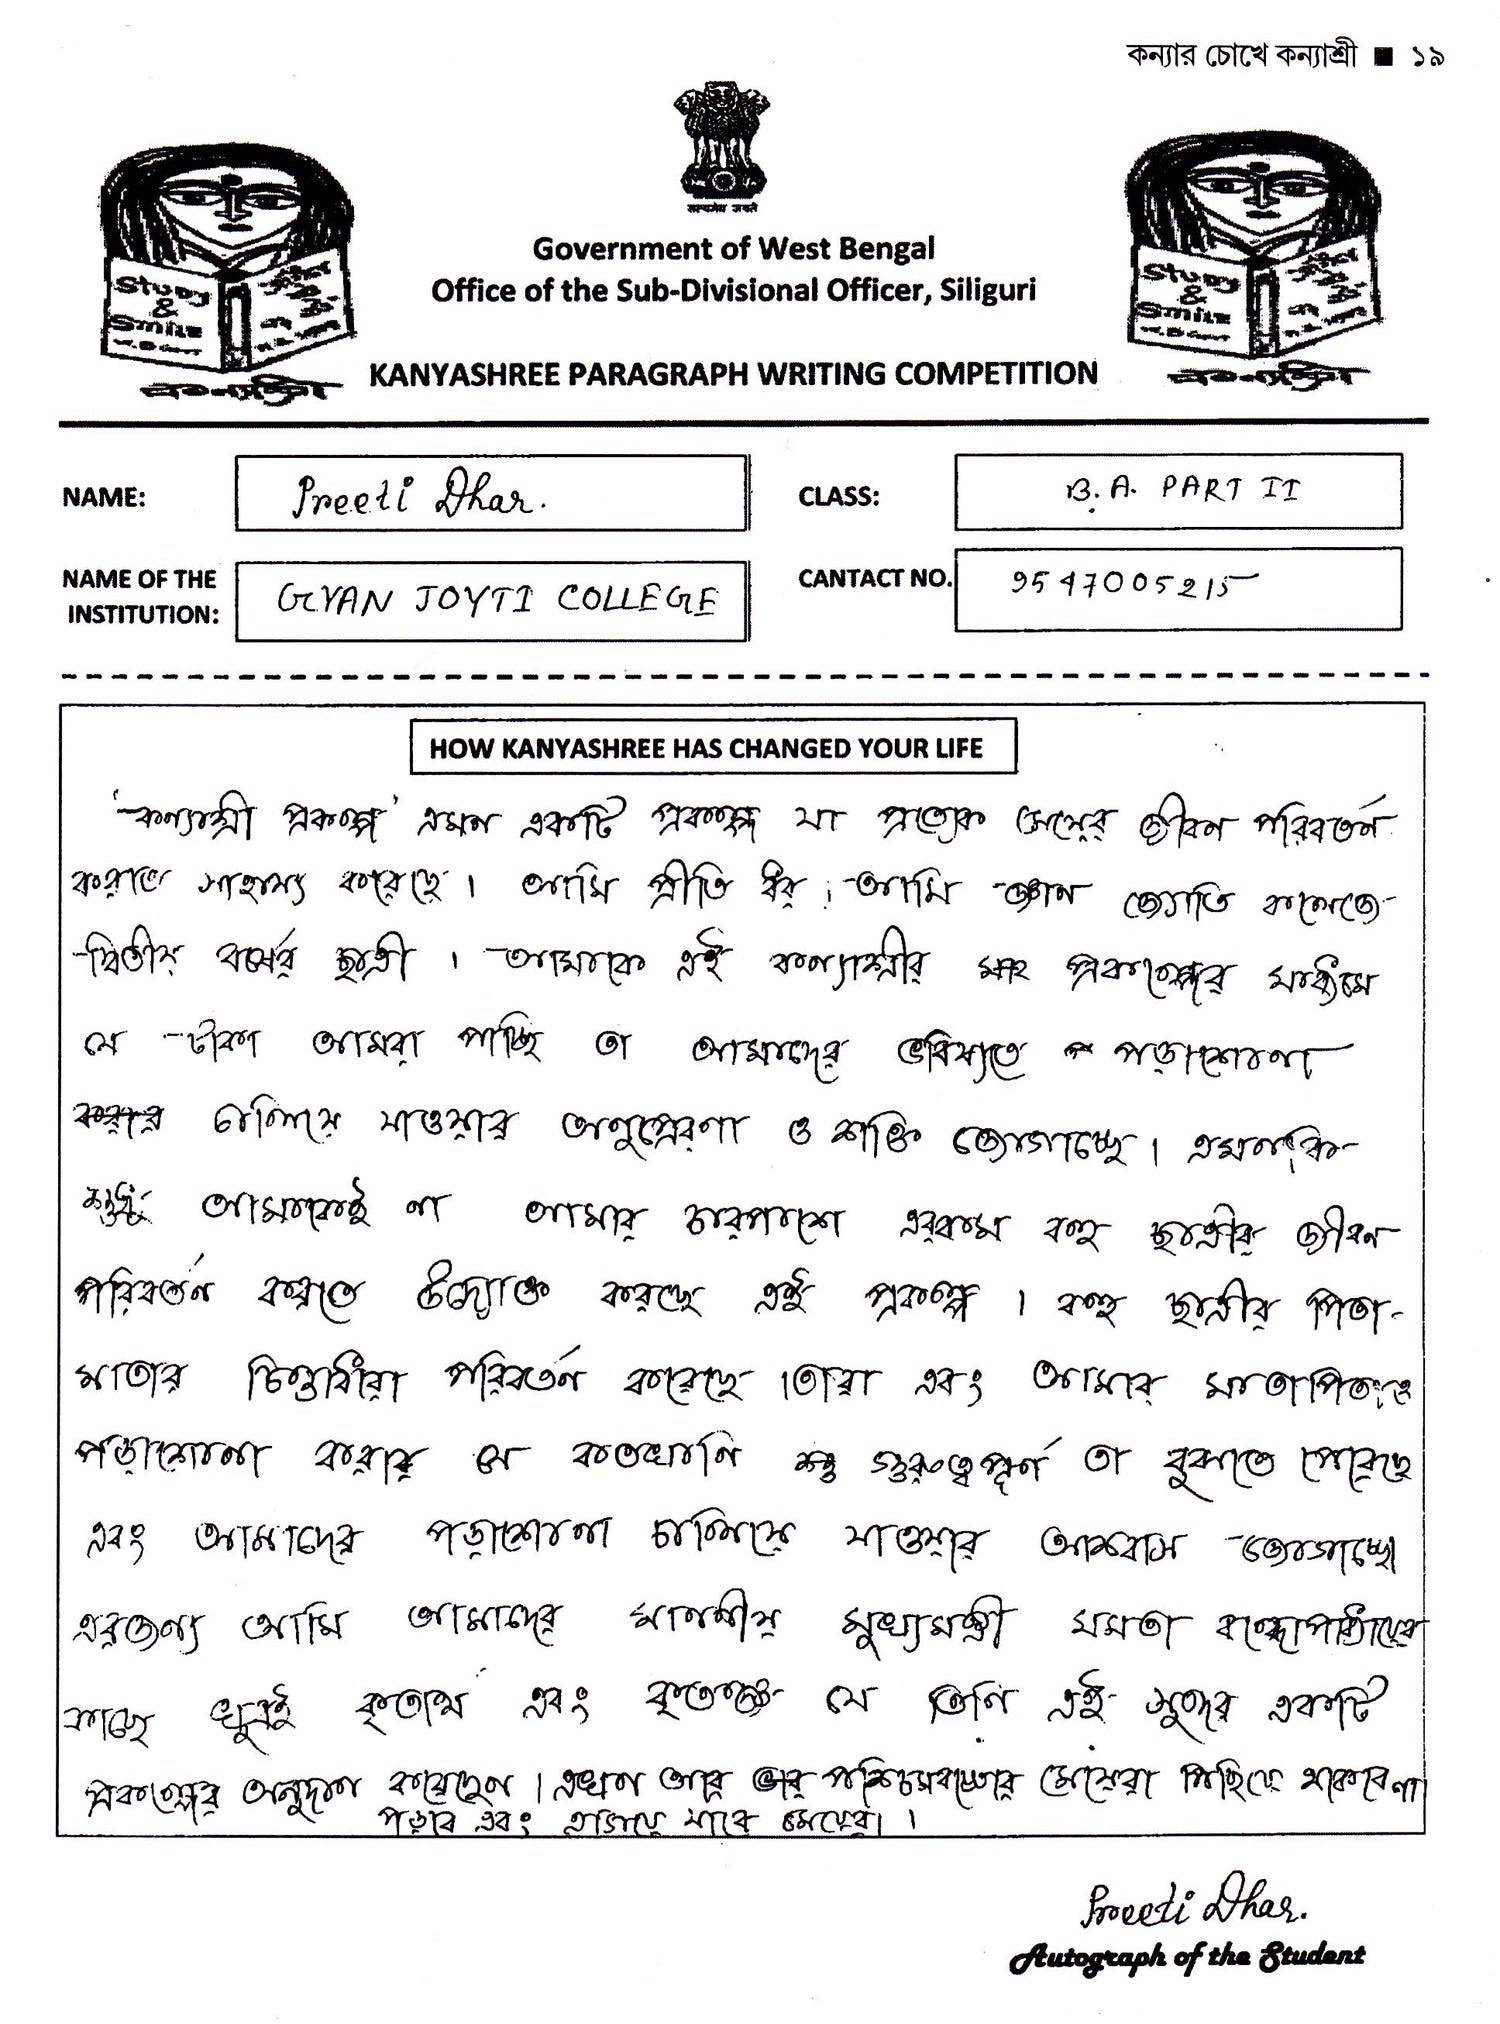 কন্যার চোখে কন্যাশ্রী ■ ১৯
सत्यमेव जयते
Government of West Bengal
Office of the Sub-Divisional Officer, Siliguri
Study & Smile
Study & Smile
কন্যাশ্রী
কন্যাশ্রী
KANYASHREE PARAGRAPH WRITING COMPETITION
NAME: Preeti Dhar. CLASS: B.A. PART II
NAME OF THE INSTITUTION: GYAN JOYTI COLLEGE CANTACT NO. 9547005215
HOW KANYASHREE HAS CHANGED YOUR LIFE
'কন্যাশ্রী প্রকল্প' এমন একটি প্রকল্প যা প্রত্যেক মেয়ের জীবন পরিবর্তন
করাতে সাহায্য করেছে। আমি প্রীতি ধর। আমি জ্ঞান জ্যোতি কলেজে
দ্বিতীয় বর্ষের ছাত্রী। আমাকে এই কন্যাশ্রীর প্রকল্পের মাধ্যমে
যে টাকা আমরা পাচ্ছি তা আমাদের ভবিষ্যতে পড়াশোনা
চালিয়ে যাওয়ার অনুপ্রেরণা ও শক্তি জোগাচ্ছে। এমনকি
শুধু আমাকেই না আমার চারপাশে এরকম বহু ছাত্রীর জীবন
পরিবর্তন করতে উদ্যোক্ত করছে এই প্রকল্প। বহু ছাত্রীর পিতা-
মাতার চিন্তাধারা পরিবর্তন করেছে। তারা এবং আমার মাতাপিতাও
পড়াশোনা করার যে কতখানি গুরুত্বপূর্ণ তা বুঝতে পেরেছে
এবং আমাদের পড়াশোনা চালিয়ে যাওয়ার আশ্বাস জোগাচ্ছে।
এরজন্য আমি আমাদের মাননীয় মুখ্যমন্ত্রী মমতা বন্দ্যোপাধ্যায়ের
কাছে খুবই কৃতার্থ এবং কৃতজ্ঞ যে তিনি এই সুন্দর একটি
প্রকল্পের অনুদান করেছেন। এখন আর পশ্চিমবঙ্গের মেয়েরা পিছিয়ে থাকবেনা
পড়বে এবং এগিয়ে যাবে মেয়েরা।
Preeti Dhar.
Autograph of the Student